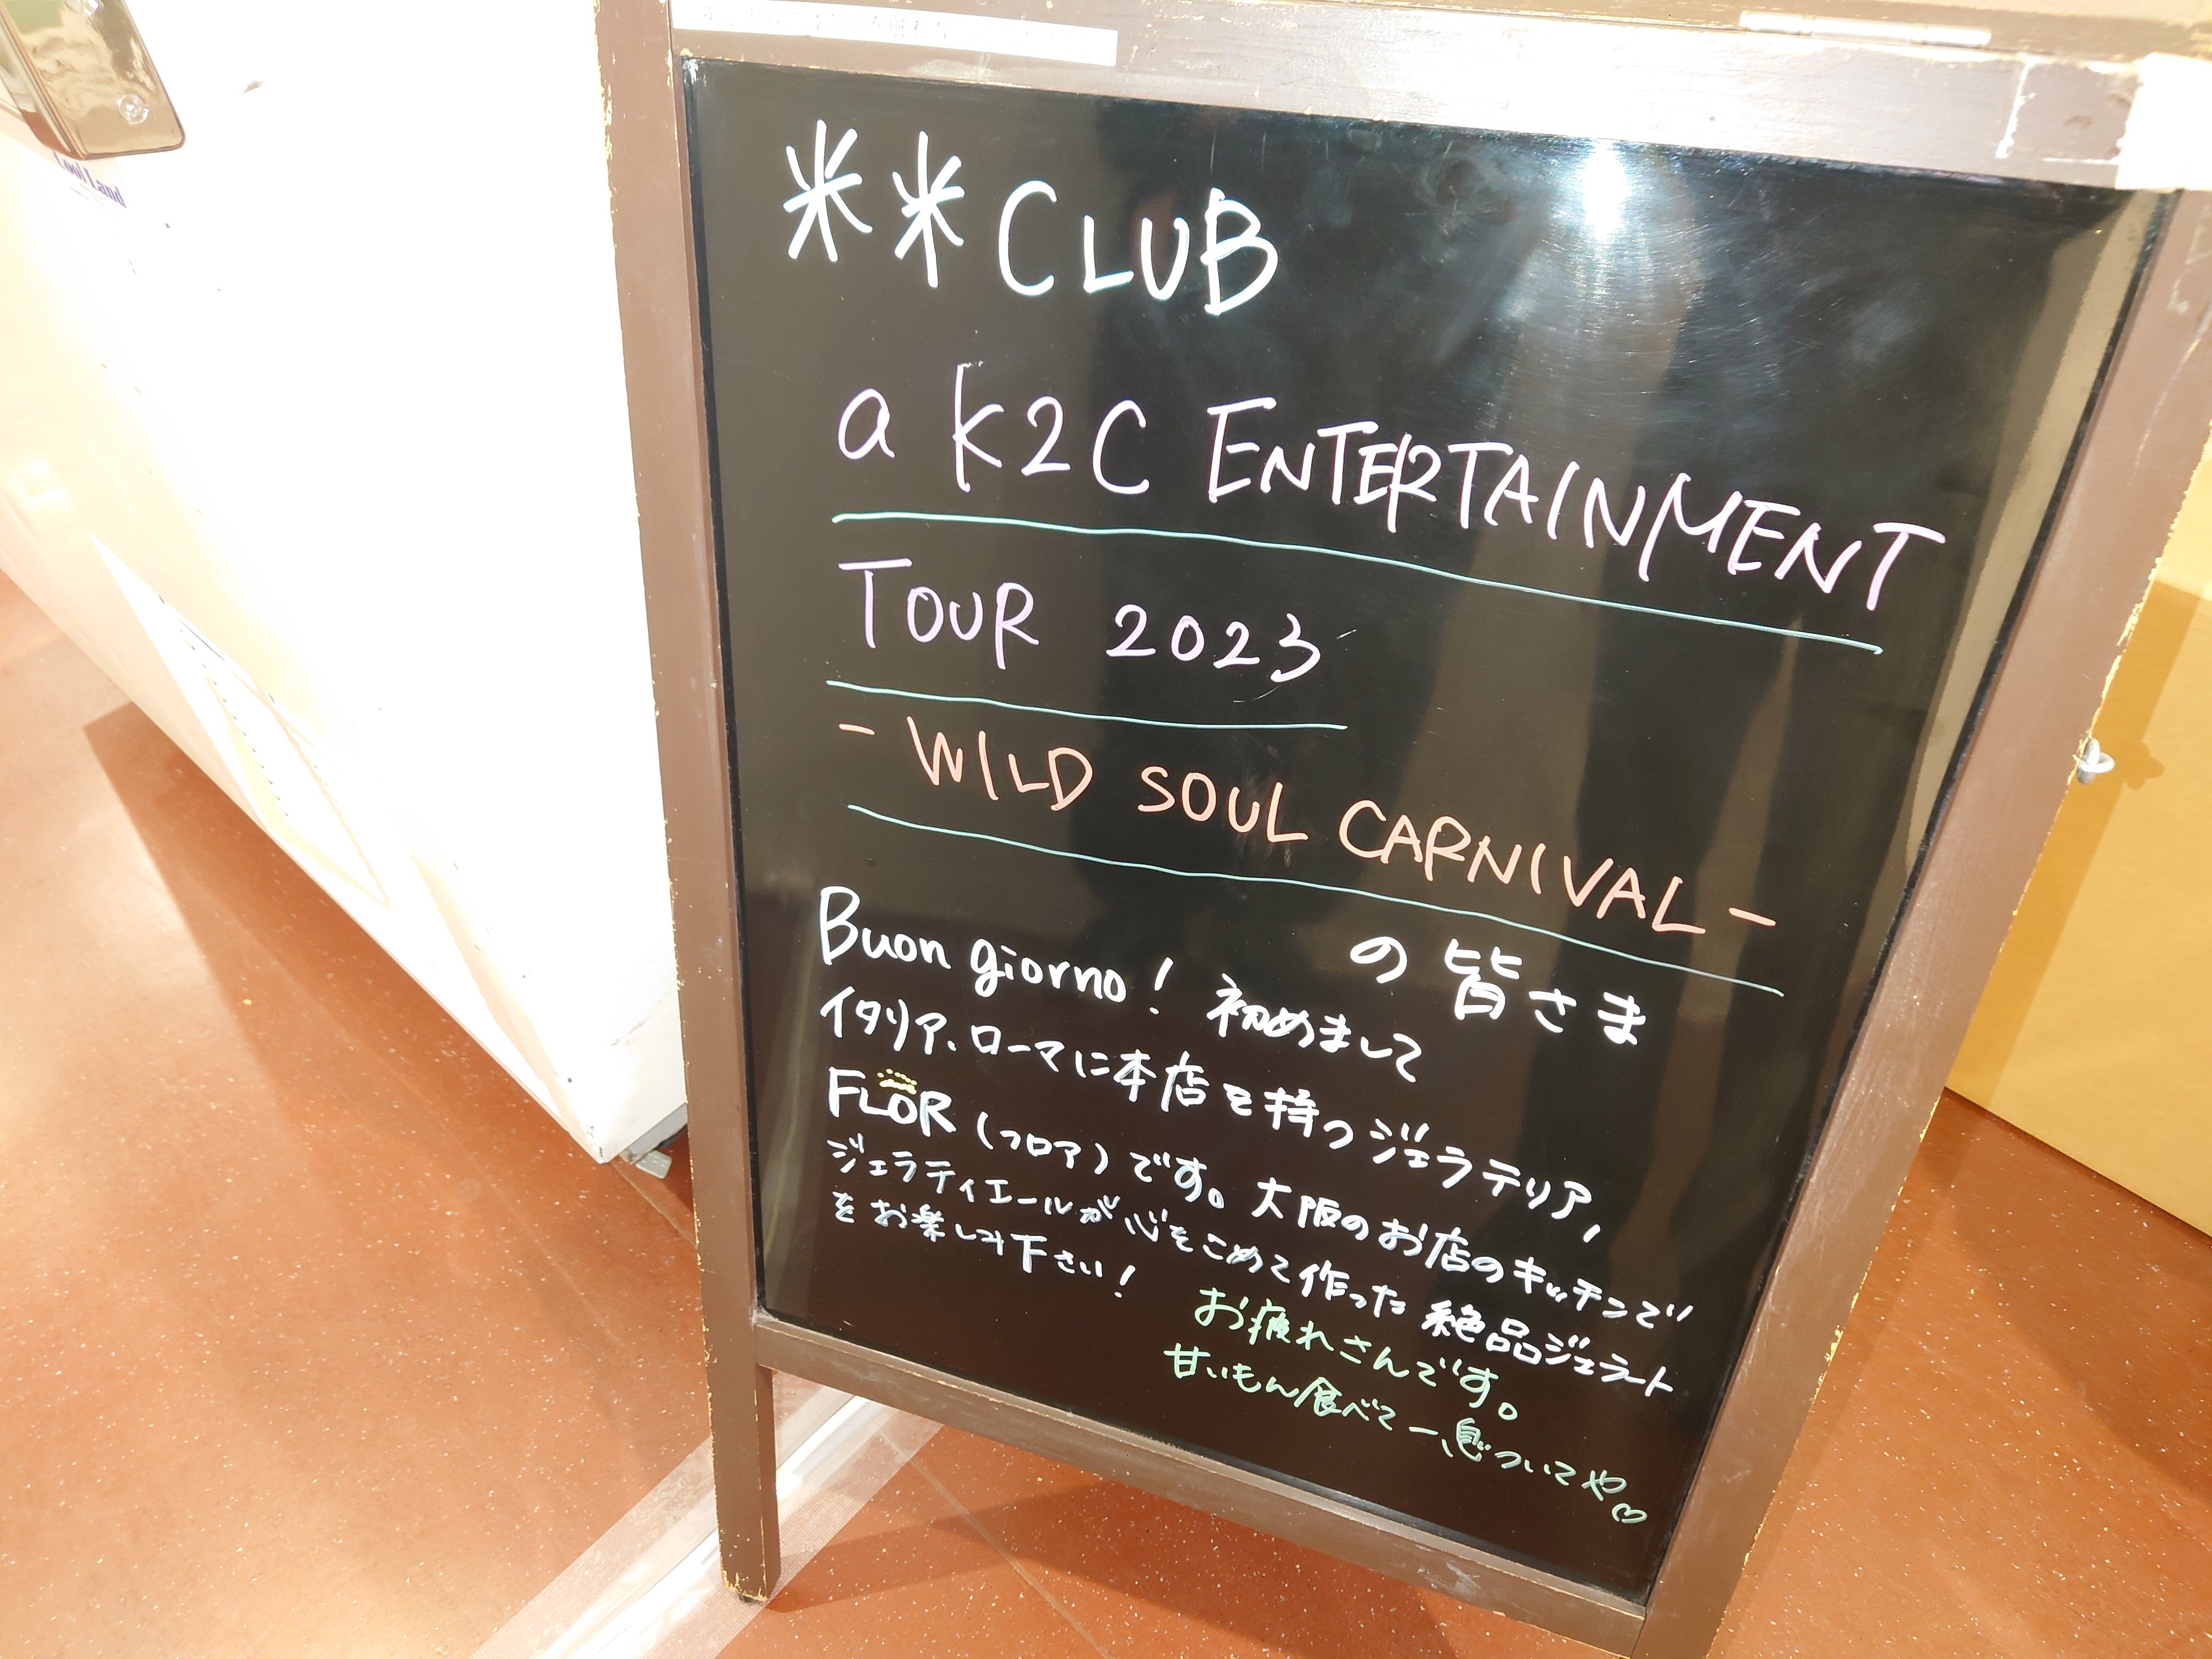 米米CLUB
a K2C ENTERTAINMENT
TOUR 2023
- WILD SOUL CARNIVAL -
の皆さま
Buon giorno! 初めまして
イタリア、ローマに本店を持つジェラテリア,
FLOR (フロア)です。大阪のお店のキッチンで
ジェラティエールが心をこめて作った絶品ジェラート
をお楽しみ下さい!
お疲れさんです。
甘いもん食べて一息ついてや♡
Cool Land